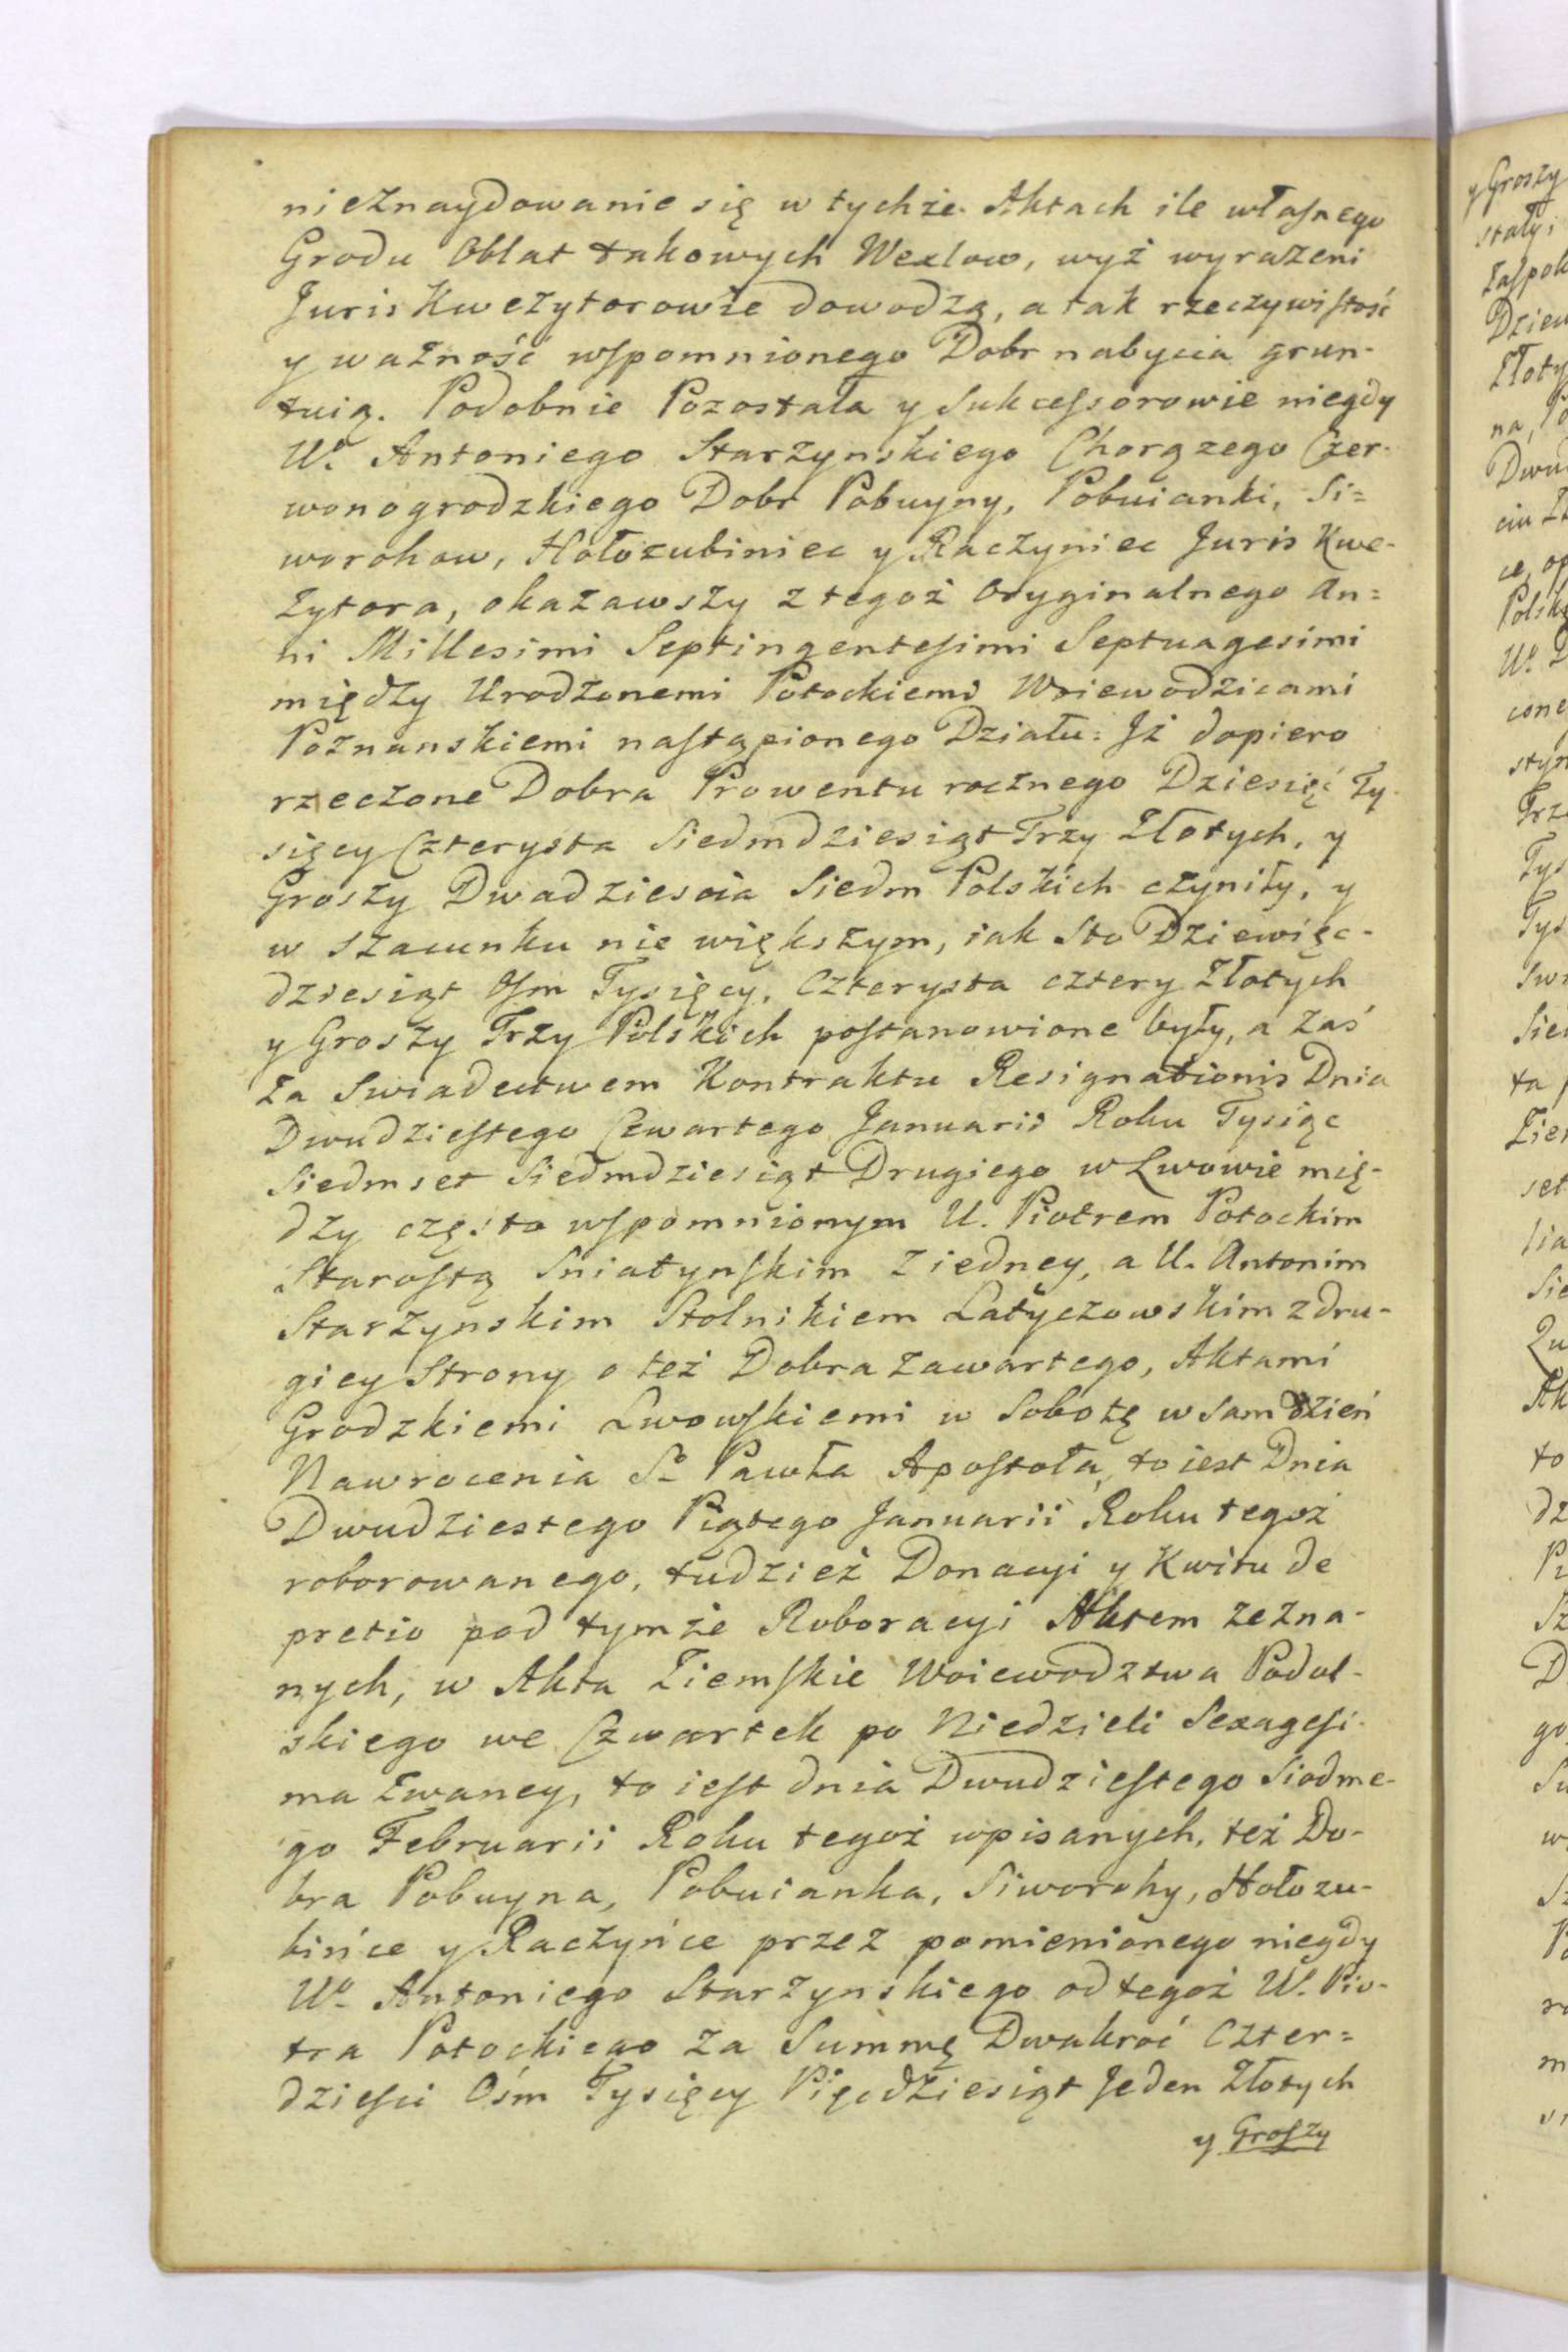 nieznaydowanie się w tychże Aktach ile własnego
Grodu Oblat takowych Wexlow, wyż wyrażeni
Juris Kwezytorowie dowodzą, a tak rzeczywistość
y ważność wspomnionego Dobr nabycia grun-
tuią. Podobnie Pozostała y Sukcessorowie niegdy
Wo. Antoniego Starzynskiego Chorązego Czer-
wonogrodzkiego Dobr Pobuyny, Pobuianki, Si=
worohow, Hołozubiniec y Raczyniec Juris Kwe-
zytora, okazawszy z tegoż Oryginalnego An=
ni Millesimi Septingentesimi Septuagesimi
między Urodzonemi Potockiemi Woiewodzicami
Poznanskiemi nastąpionego Działu: Jż dopiero
rzeczone Dobra Prowentu rocznego Dziesięć Ty-
sięcy Czterysta Siedmdziesiąt Trzy Złotych, y
Groszy Dwadziescia Siedm Polskich czyniły, y
w szacunku nie większym, iak Sto Dziewięc-
dziesiąt Osm Tysięcy, Czterysta cztery Złotych
y Groszy Trzy Polskich postanowione były, a zaś
za Swiadectwem Kontraktu Resignationis Dnia
Dwudziestego Czwartego Januarii Roku Tysiąc
Siedmset Siedmdziesiąt Drugiego w Lwowie mię-
dzy często wspomnionym U. Piotrem Potockim
Starostą Sniatynskim z iedney, a U. Antonim
Starzynskim Stolnikiem Latyczowskim z dru-
giey Strony o też Dobra zawartego, Aktami
Grodzkiemi Lwowskiemi w Sobotę w sam dzień
Nawrocenia So Pawła Apostoła, to iest Dnia
Dwudziestego Piątego Januarii Roku tegoż
roborowanego, tudzież Donacyi y Kwitu de
pretio pod tymże Roboracyi Aktem zezna-
nych, w Akta Ziemskie Woiewodztwa Podol-
skiego we Czwartek po Niedzieli Sexagesi-
ma zwaney, to iest dnia Dwudziestego Siodme-
go Februarii Roku tegoż wpisanych, też Do-
bra Pobuyna, Pobuianka, Siworohy, Hołozu-
bińce y Raczyńce przez pomienionego niegdy
Wo. Antoniego Starzynskiego od tegoż W. Pio-
tra Potockiego za Summę Dwakroć Czter=
dziesci Ośm Tysięcy Pięcdziesiąt Jeden Złotych
y Groszy